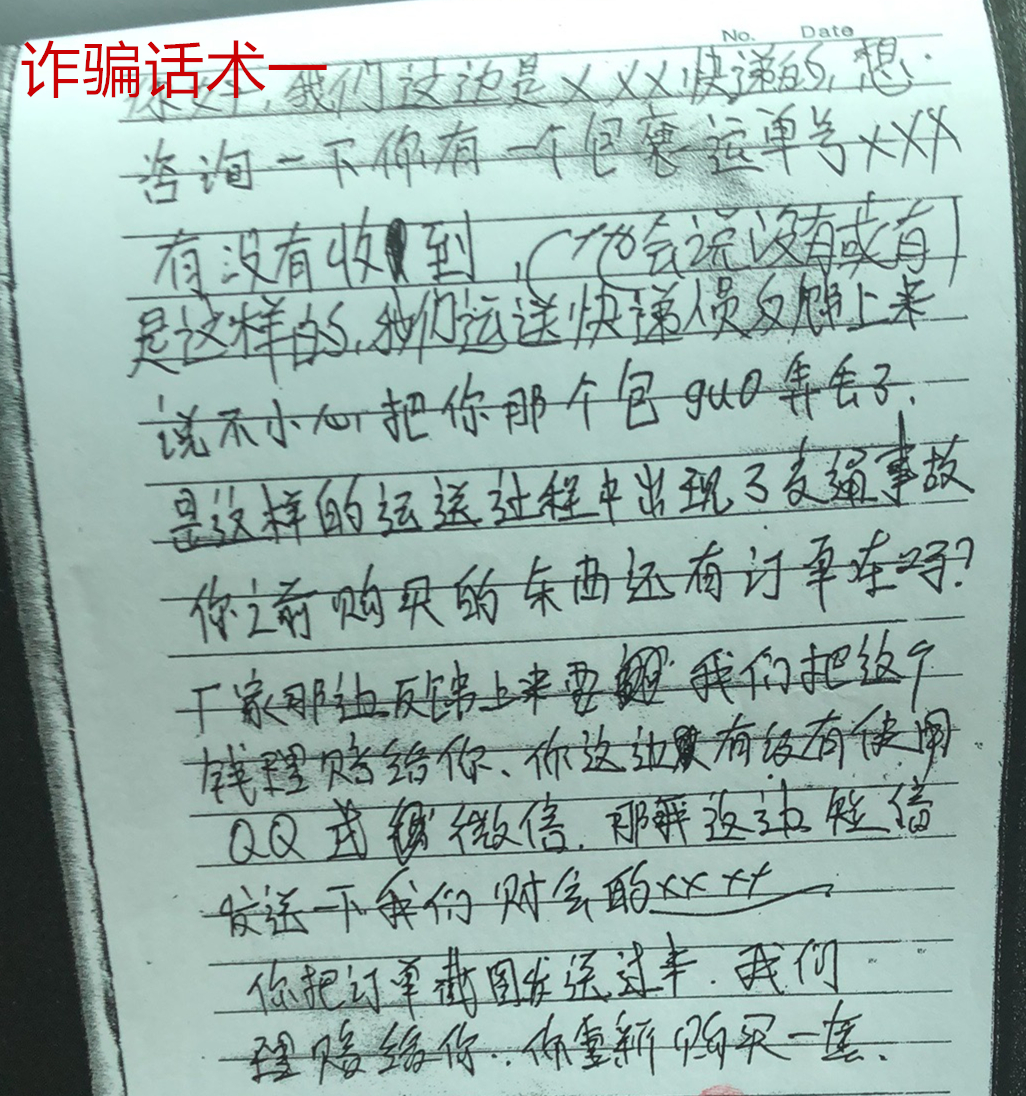 No. Date
诈骗话术一
你好,我们这边是XXX快递的,想
咨询一下你有一个包裹运单号XXX
有没有收到,(他会说没有或有)
是这样的,我们运送快递员反馈上来
说不小心把你那个包guo弄丢了.
是这样的运送过程中出现了交通事故
你之前购买的东西还有订单在吗?
厂家那边反馈上来要 我们把这个
钱理赔给你、你这边有没有使用
QQ或 微信.那我这边短信
发送一下我们财会的xxxx
你把订单截图发送过来.我们
理赔给你..你重新购买一套、